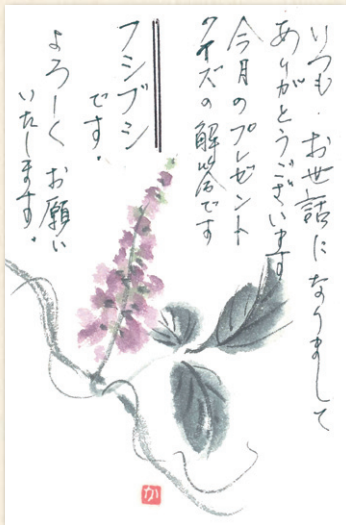 いつも お世話になりまして
ありがとうございます
今月のプレゼント
クイズの解答です
フシブシ
です.
よろしく お願い
いたします.
か